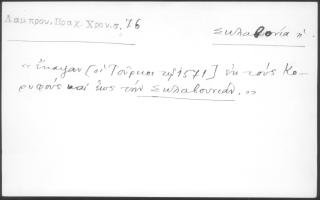 Λάμπρου, Βραχ. Χρον. σ. 76
Σκλαβονία ἡ.
« ἔκαψαν [οἱ Τοῦρκοι τῷ 1571] ἐκ τοὺς Κο-
ρυφοὺς καὶ ἕως τὴν Σκλαβουνιάν. »